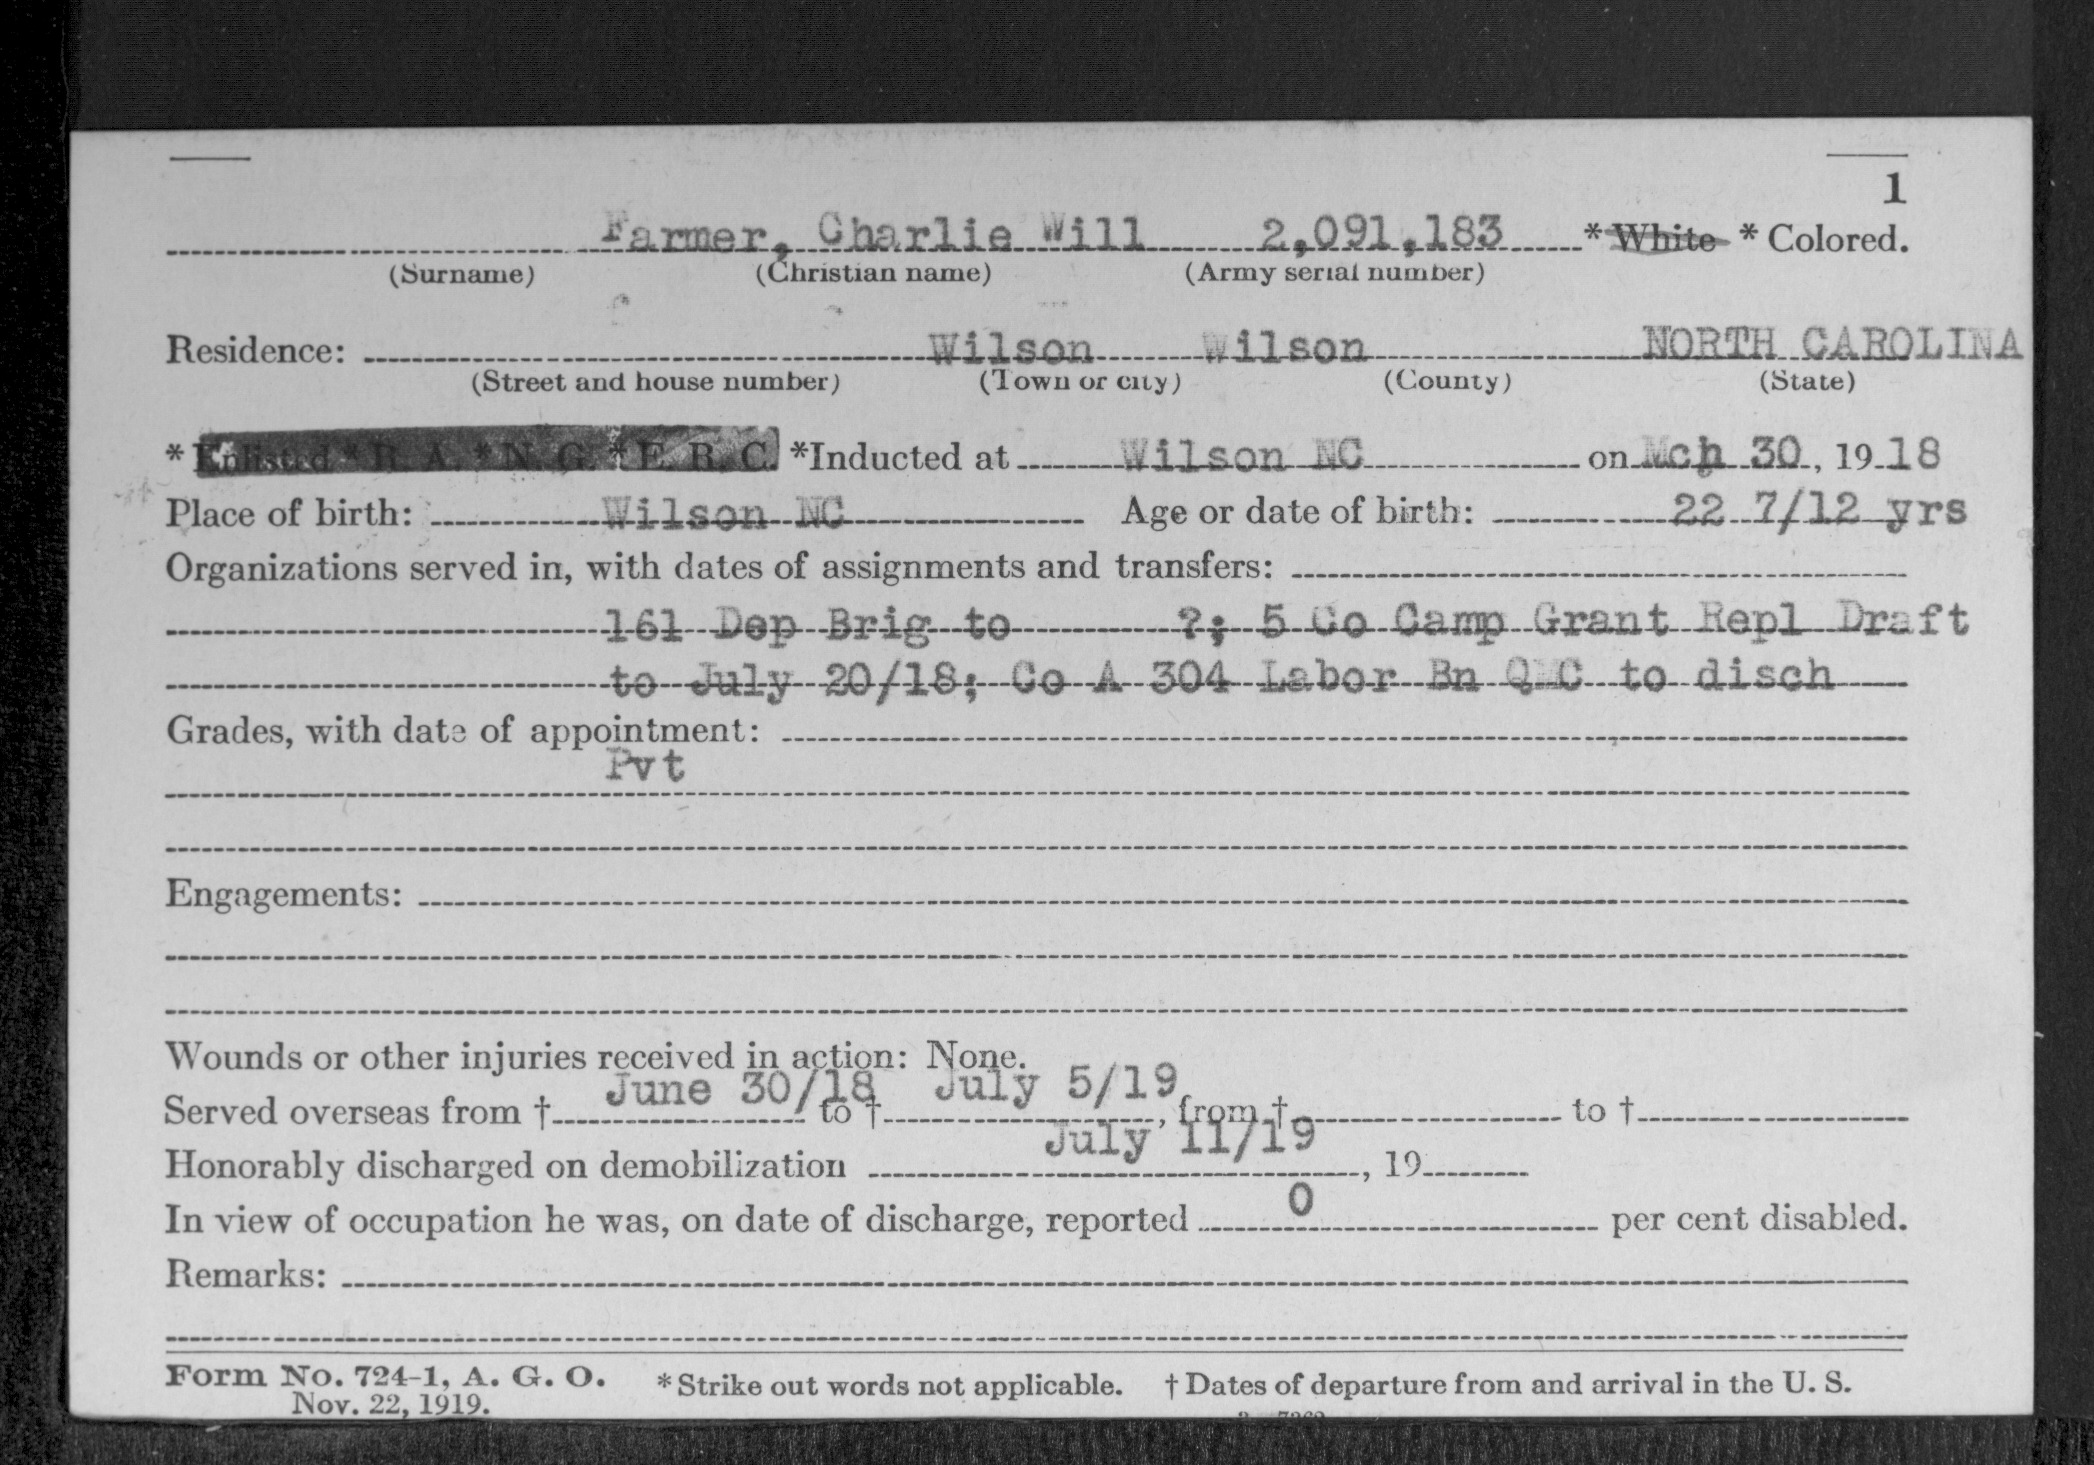 1
Farmer, Charlie Will 2,091,183 *White *Colored.
(Surname) (Christian name) (Army serial number)
Residence: Wilson Wilson NORTH CAROLINA
(Street and house number) (Town or city) (County) (State)
*Enlisted *R. A. *N. G. *E. R. C. *Inducted at Wilson NC on Mch 30, 1918
Place of birth: Wilson NC Age or date of birth: 22 7/12 yrs
Organizations served in, with dates of assignments and transfers:
161 Dep Brig to ?; 5 Co Camp Grant Repl Draft
to July 20/18; Co A 304 Labor Bn QMC to disch
Grades, with date of appointment:
Pvt
Engagements:
Wounds or other injuries received in action: None.
Served overseas from † June 30/18 to † July 5/19, from † to †
Honorably discharged on demobilization July 11/19, 19
In view of occupation he was, on date of discharge, reported 0 per cent disabled.
Remarks:
Form No. 724-1, A. G. O. *Strike out words not applicable. † Dates of departure from and arrival in the U. S.
Nov. 22, 1919.